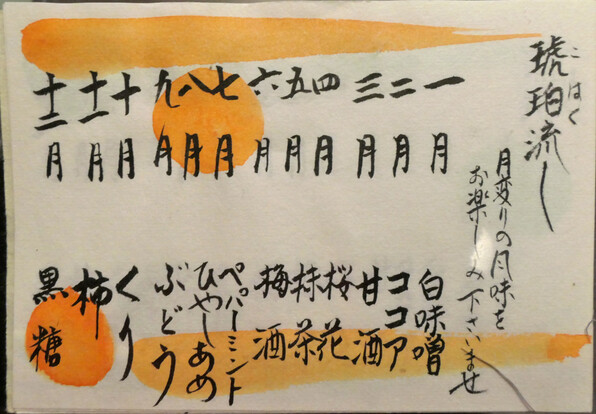 琥珀流し
こはく
月変りの風味を
お楽しみ下さいませ
一月 白味噌
二月 ココア
三月 甘酒
四月 桜花
五月 抹茶
六月 梅酒
七月 ペッパーミント
八月 ひやしあめ
九月 ぶどう
十月 くり
十一月 柿
十二月 黒糖